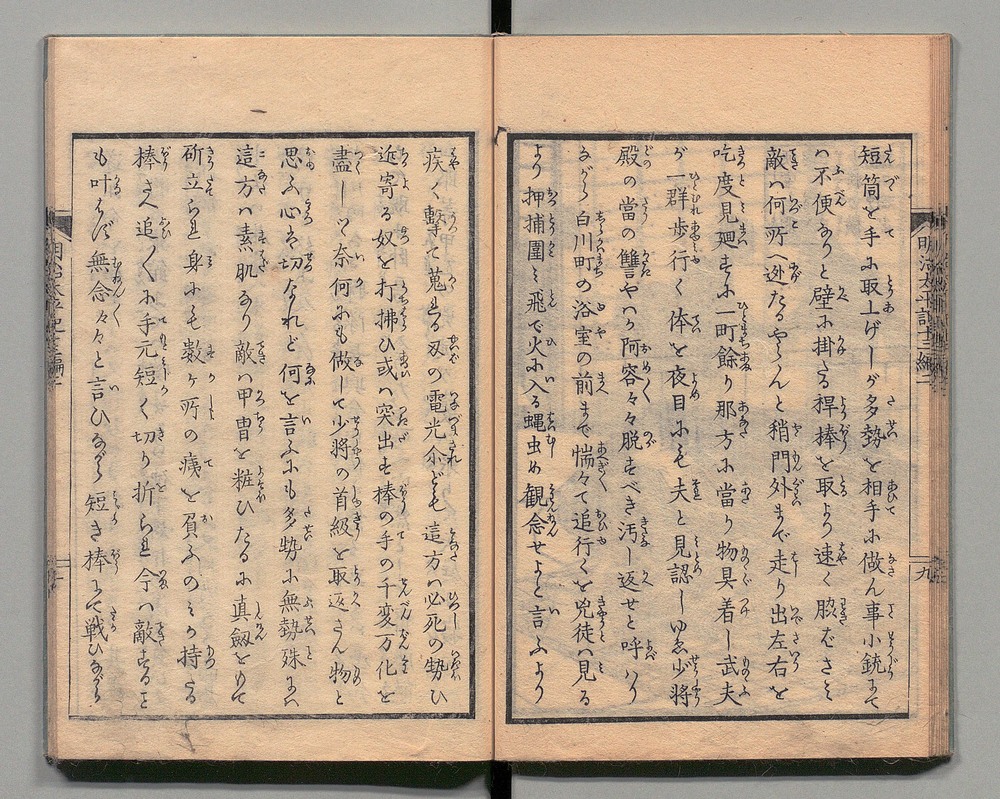 短筒を手に取上げしが多勢を相手に做ん事小銃にて
ハ不便なりと壁に掛たる桿棒を取より速く脇ばさミ
敵ハ何所へ迯たるやらんと稍門外まで走り出左右を
吃度見廻すに一町餘り那方に當り物具着し武夫
が一群歩行く体を夜目にも夫と見認しゆゑ少将
殿の當の讐やハか阿容々々脱すべき汚し返せと呼ハり
ながら白川町の浴室の前まで惴々て追行くを兇徒ハ見る
より押捕圍ミ飛で火に入る蝿虫め観念せよと言ふより
疾く撃て蒐る刄の電光尒ども這方ハ必死の勢ひ
近寄る奴を打拂ひ或ハ突出す棒の手の千変万化を
盡しツ奈何にも做して少将の首級を取返さん物と
思ふ心ハ切なれど何を言ふにも多勢に無勢殊にハ
這方ハ素肌なり敵ハ甲冑を粧ひたるに真劔をもて
斫立られ身にも数ヶ所の痍を負ふのミか持たる
棒さへ追々に手元短く切り折られ今ハ敵すること
も叶はず無念々々と言ひながら短き棒にて戦ひながら
明治太平記十三編二
九